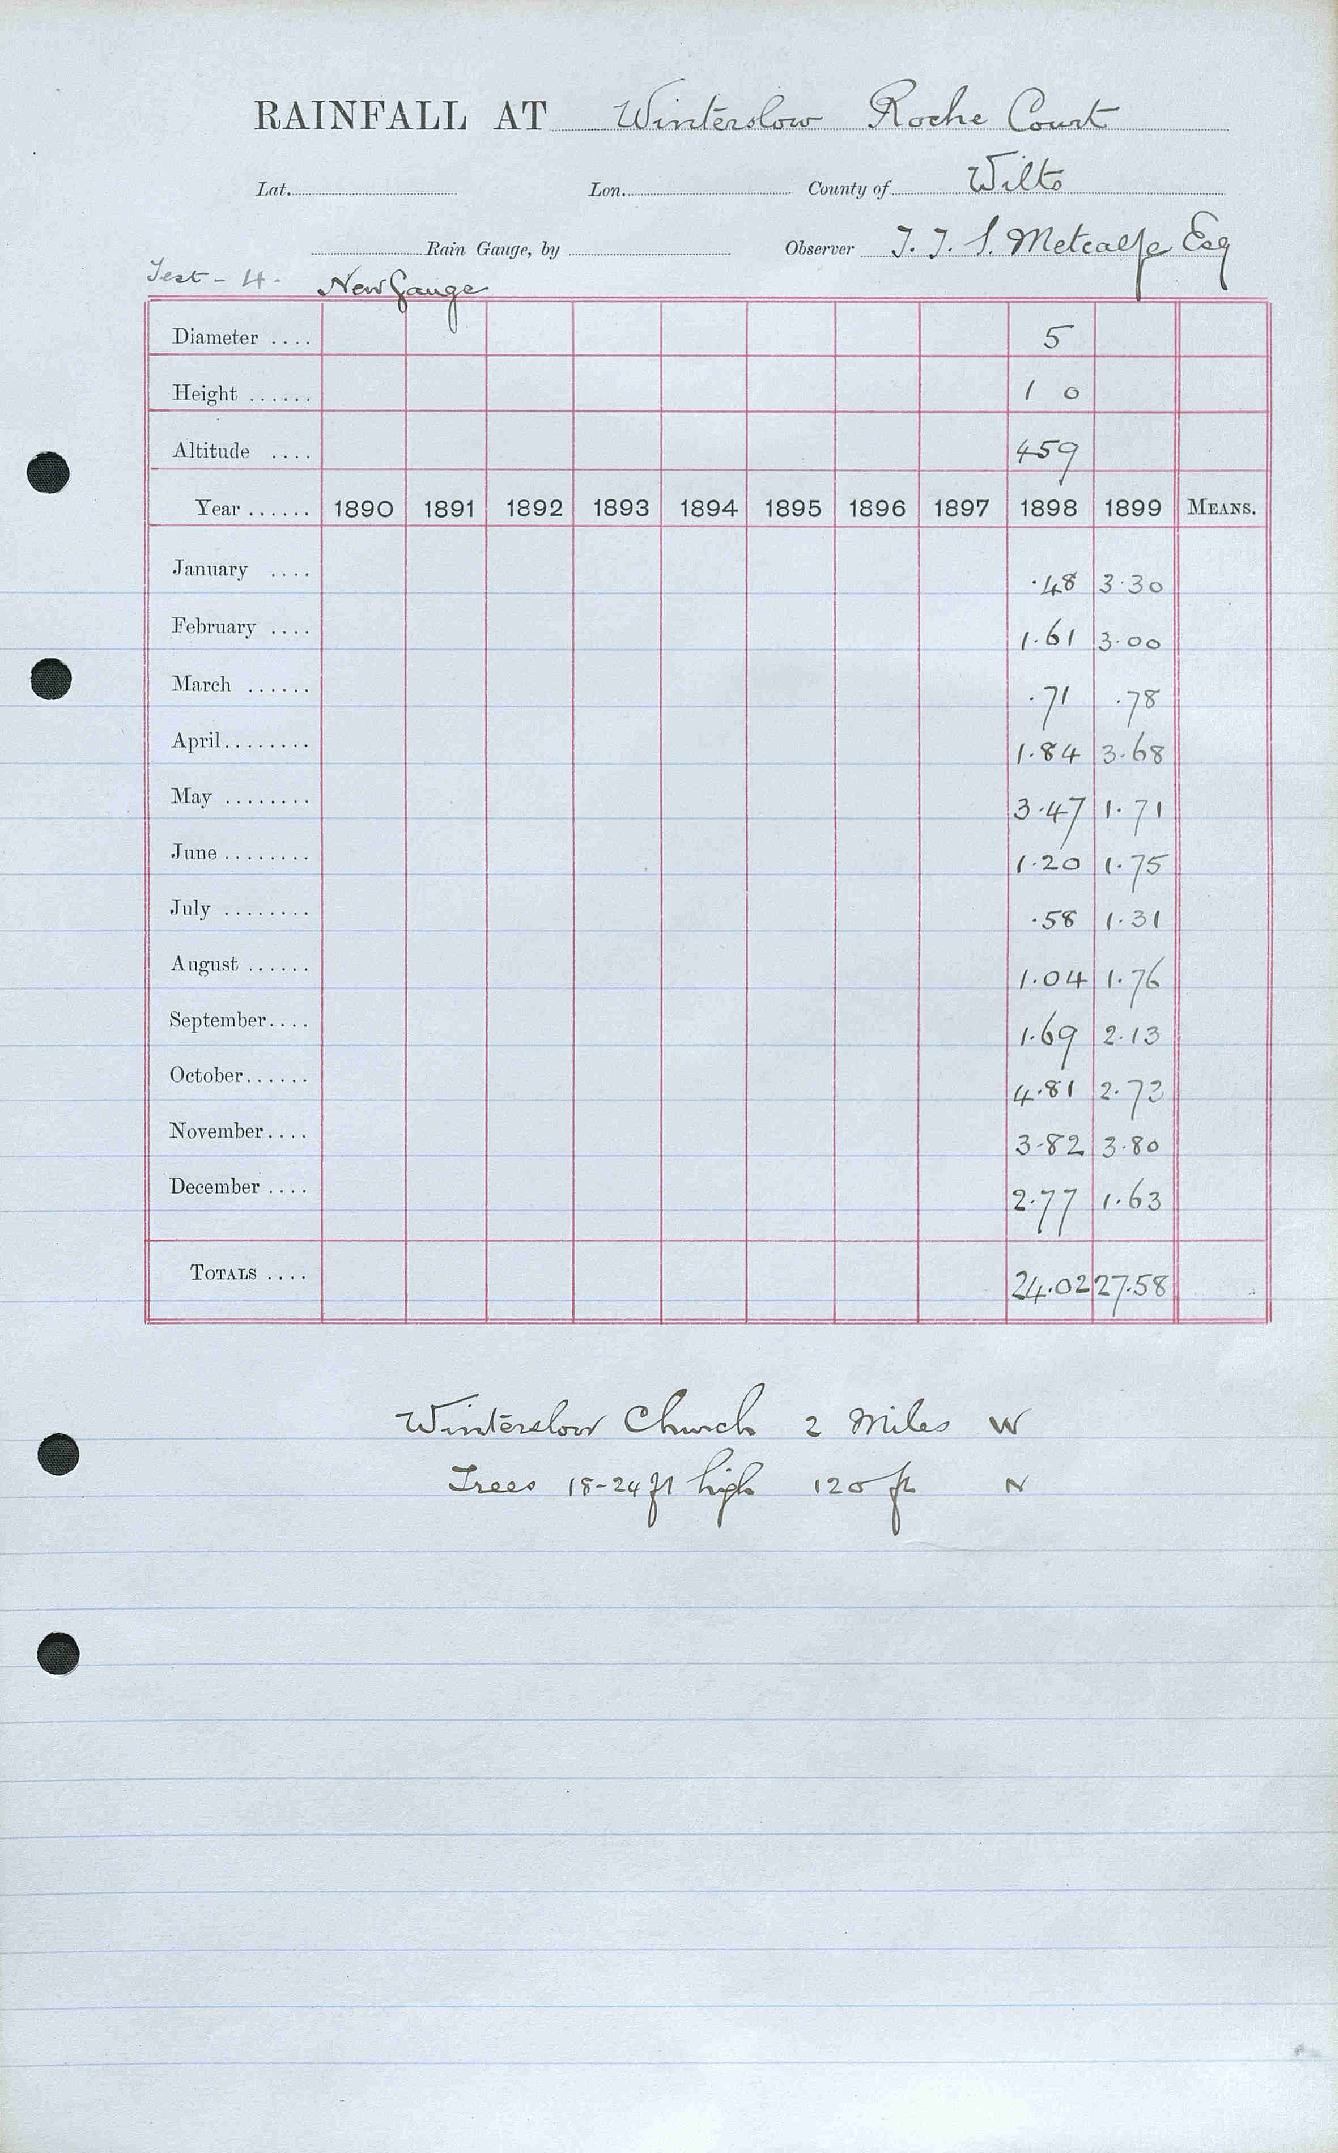 RAINFALL AT Winterslow Roche Court
Lat. Lon. County of Wilts
Rain Gauge, by Observer J. J. S. Metcalfe Esq
Test - 4. New Gauge
Diameter .... 5
Height ...... 1 0
Altitude .... 459
Year ...... 1890 1891 1892 1893 1894 1895 1896 1897 1898 1899 MEANS.
January .... .48 3.30
February .... 1.61 3.00
March ...... .71 .78
April........ 1.84 3.68
May ........ 3.47 1.71
June ........ 1.20 1.75
July ........ .58 1.31
August ...... 1.04 1.76
September.... 1.69 2.13
October...... 4.81 2.73
November.... 3.82 3.80
December .... 2.77 1.63
TOTALS .... 24.02 27.58
Winterslow Church 2 Miles W
Trees 18-24 ft high 120 ft N